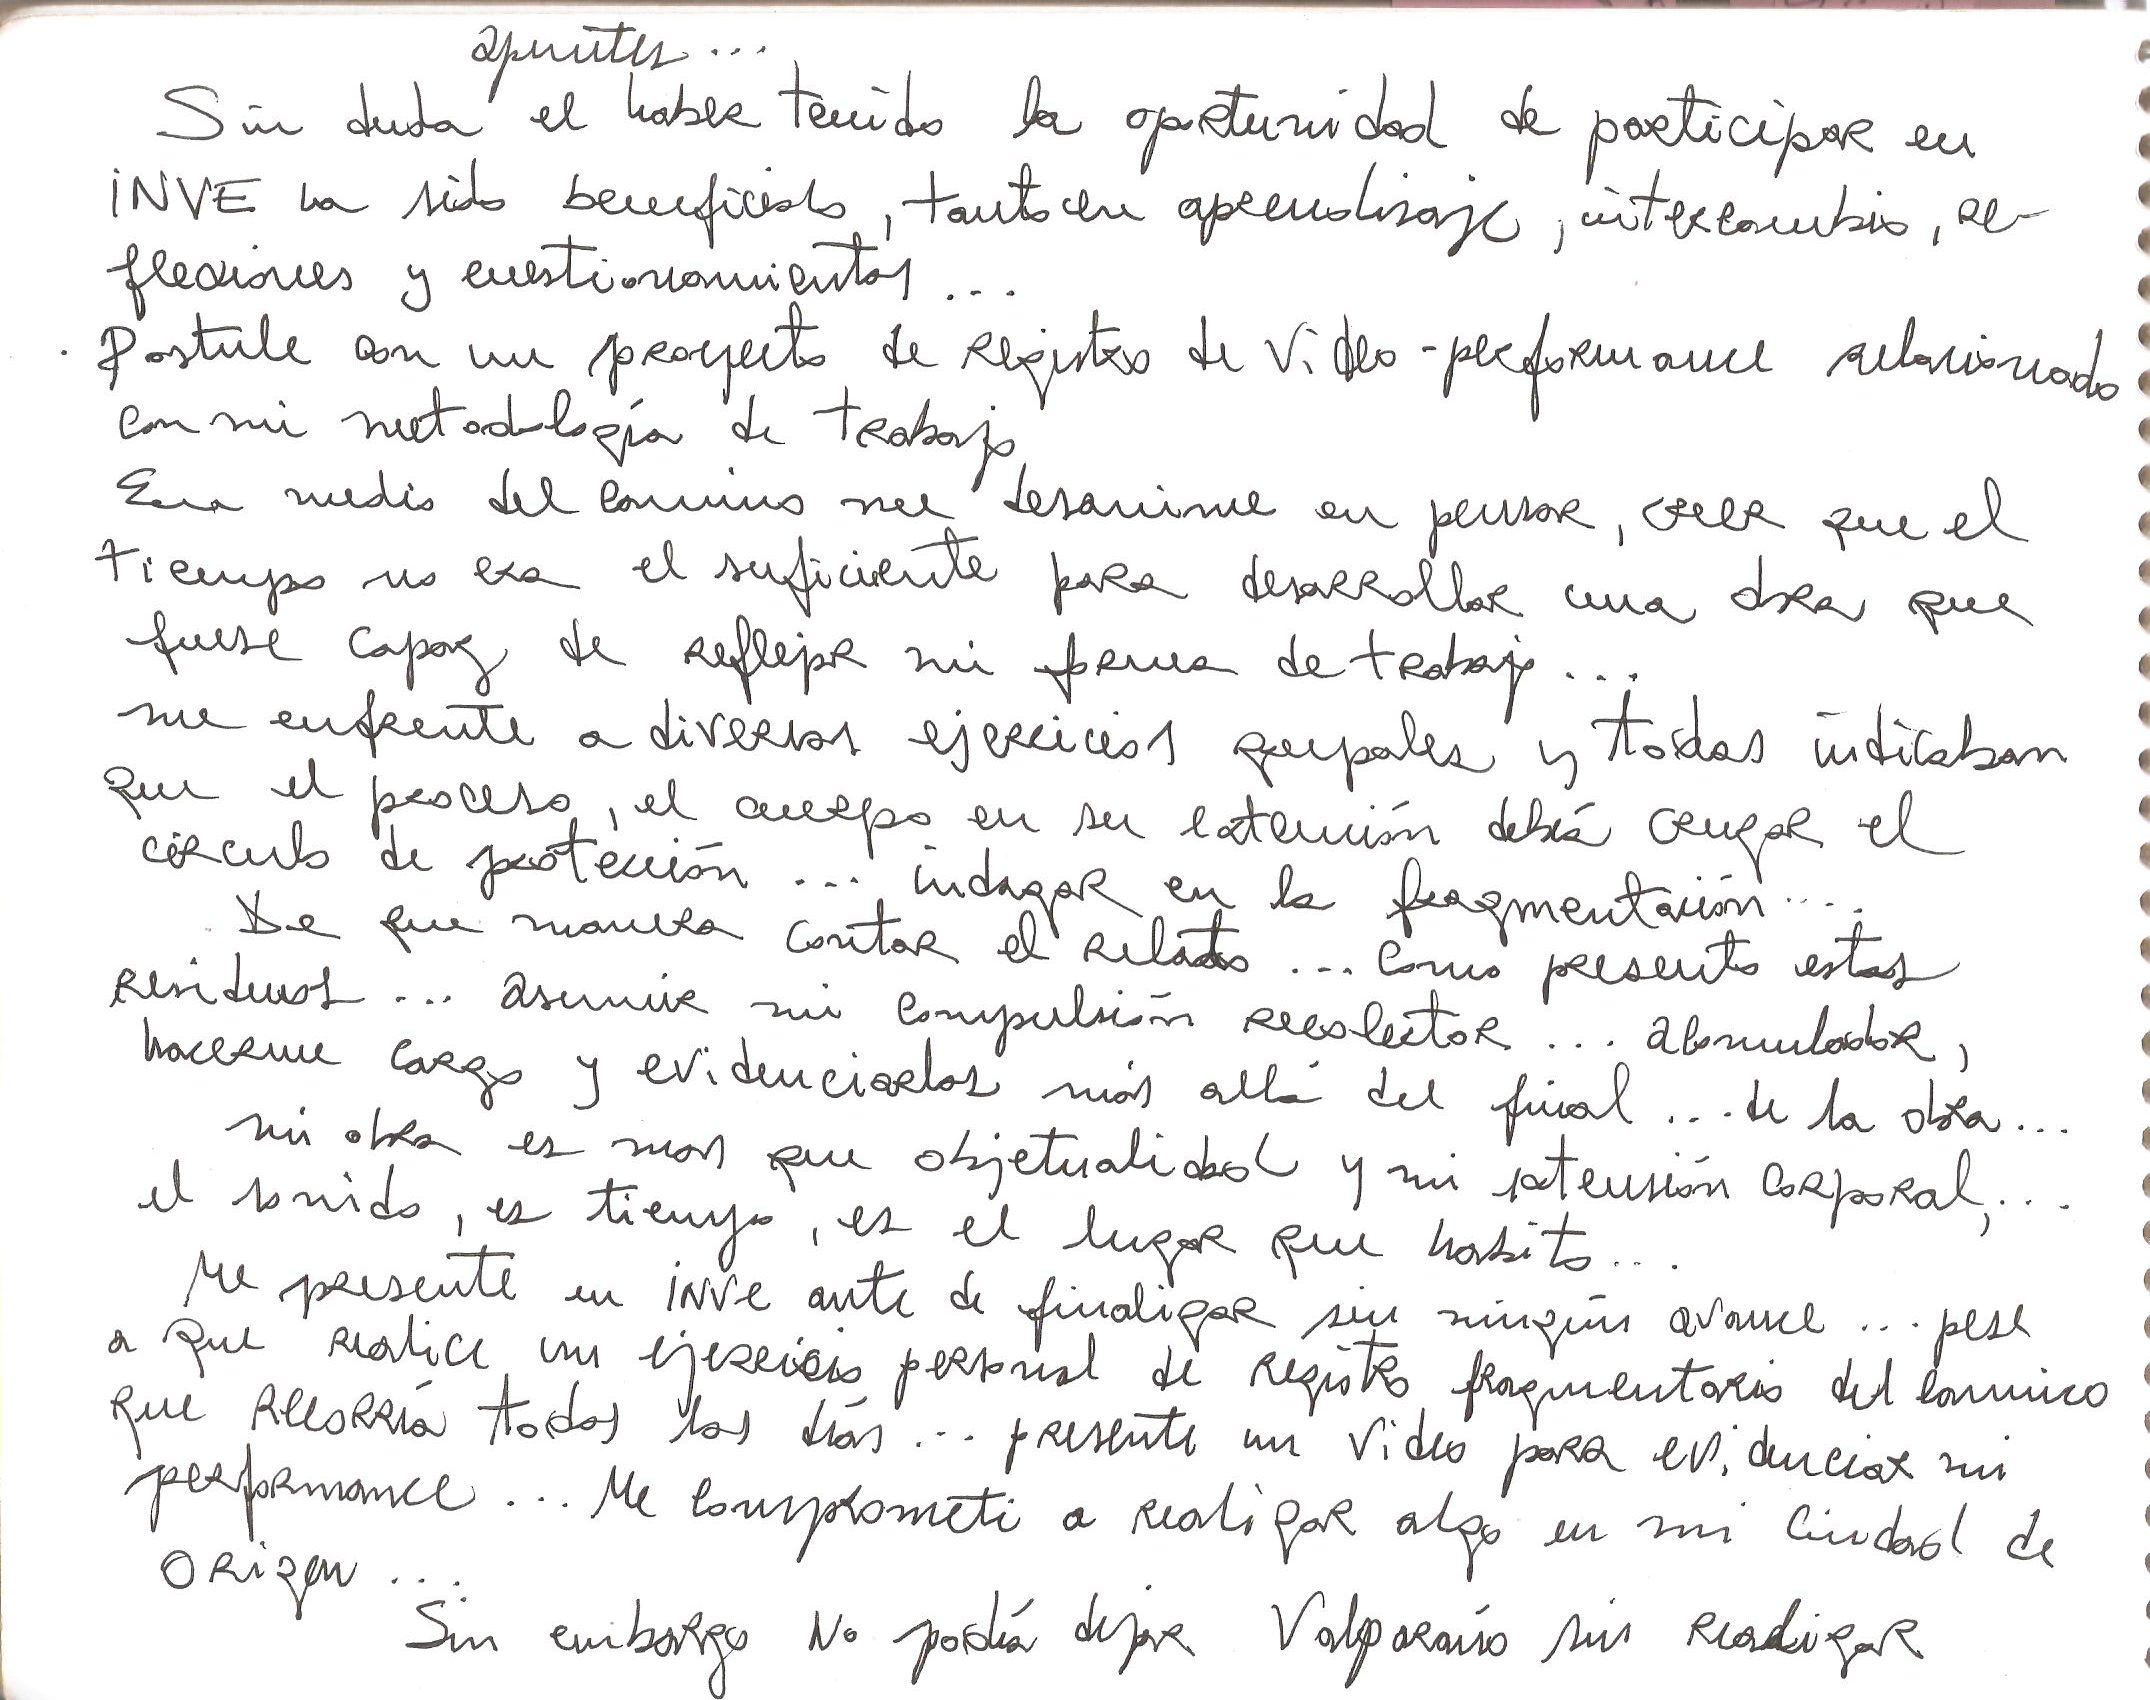 apuntes...
Sin duda el haber tenido la oportunidad de participar en
INVE ha sido beneficioso, tanto en aprendisaje, intercambio, re-
flexiones y cuestionamientos...
Postule con un proyecto de registro de video-performance relacionado
con mi metodología de trabajo
En medio del camino me desanime en pensar, creer que el
tiempo no era el suficiente para desarrollar una obra que
fuese capaz de reflejar mi forma de trabajo...
me enfrente a diversos ejercicios grupales y todos indicaban
que el proceso, el cuerpo en su extención debía cruzar el
circulo de protección ... indagar en la fragmentación....
De que manera contar el relato ... como presento estos
residuos ... asumir mi compulsión recolector ... acomulador,
hacerme cargo y evidenciarlos más allá del final ... de la obra...
mi obra es mas que objetualidad y mi extensión corporal,...
el sonido, es tiempo, es el lugar que habito...
Me presente en INVE ante de finalizar sin ningún avance ... pese
a que realice un ejercicio personal de registro fragmentario del camino
que recorría todos los días ... presente un video para evidenciar mi
performance ... Me comprometi a realizar algo en mi ciudad de
origen ...
Sin embargo No podía dejar Valparaíso sin realizar